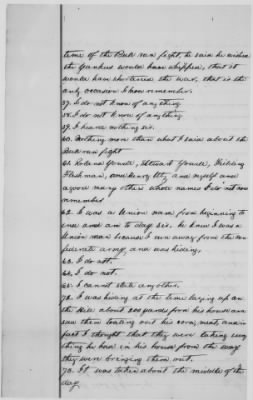 time of the Bull run fight, he said he wished
the Yankees would have whipped, that it
would have shortened the war, that is the
only occasion I know remember.
37. I do not know of anything
38. I do not know of anything
39. I heard nothing sir.
40. Nothing more than what I said about the
Bull run fight
41. Roland Yowell, Yowell, Fielding
Fleshman, and Henry Utz and myself and
a good many others whose names I do not now
remember
42. I was a Union man from beginning to
end and am to day sir, he knew I was a
Union man because I run away from the con
federate army, and was hiding,
43. I do not.
44. I do not.
45. I cannot state any other.
72. I was hiding at the time laying up on
the Hill about 200 yards from his house and
saw them toating out his corn, meat, and in
fact I thought that they were taking every
thing he had in his house from the way
they were bringing them out.
73. It was taken about the middle of the
day.